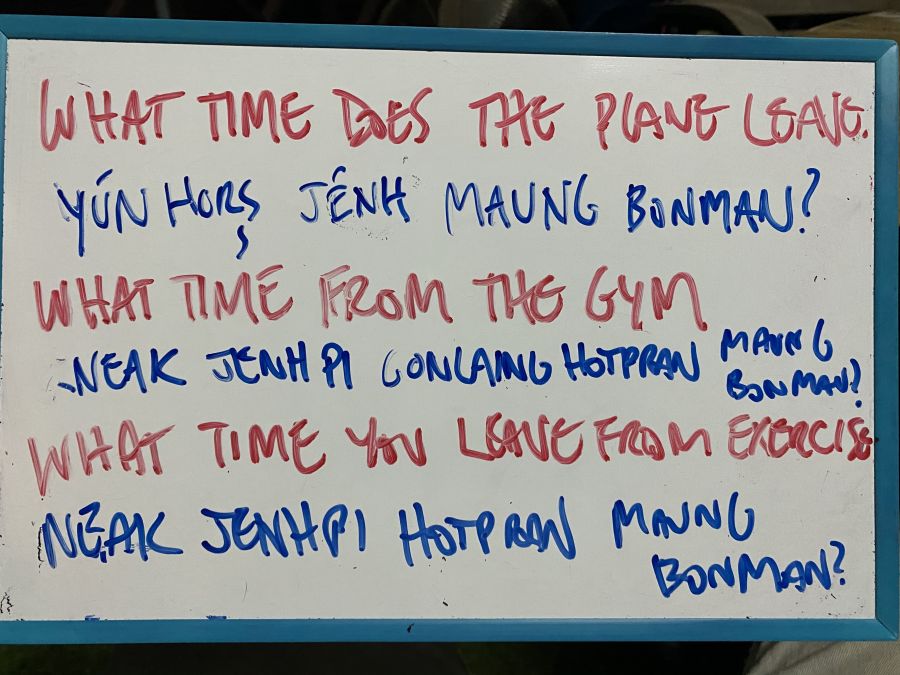 WHAT TIME DOES THE PLANE LEAVE.
YÚN HORS JÉNH MAUNG BONMAN?
WHAT TIME FROM THE GYM
NEAK JENH PI CONLAING HOTPRAN MAUNG
BONMAN?
WHAT TIME YOU LEAVE FROM EXERCISE
NEAK JENH PI HOTPRAN MAUNG
BONMAN?